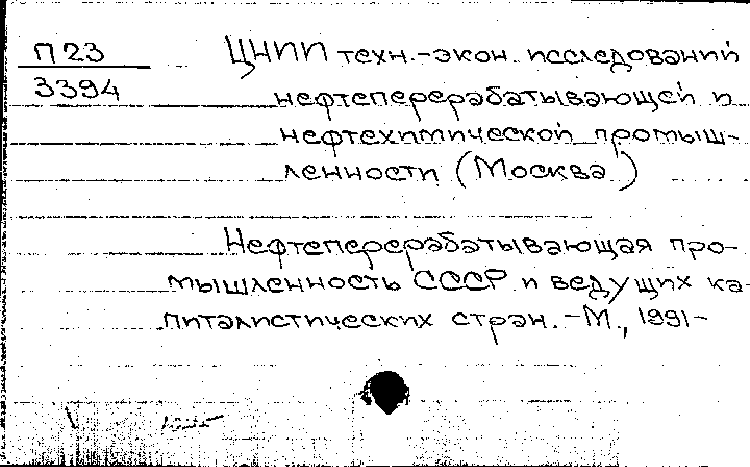 П 23
3394
ЦНИИ техн.-экон. исследований
нефтеперерабатывающей и
нефтехимической промыш-
ленности (Москва)
Нефтеперерабатывающая про-
мышленность СССР и ведущих ка-
питалистических стран. - М., 1991-